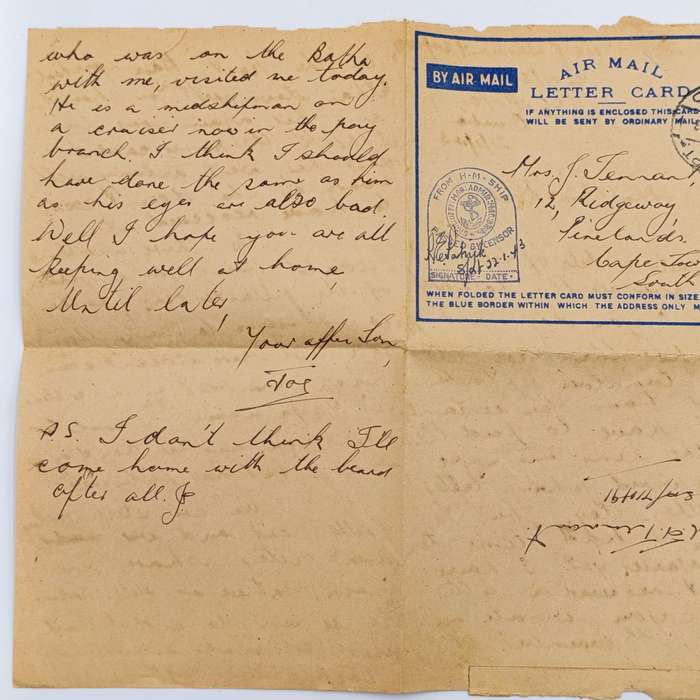 who was on the Botha
with me, visited me today.
He is a midshipman on
a cruiser now in the pay
branch. I think I should
have done the same as him
as his eyes are also bad.
Well I hope you are all
keeping well at home,
Until later,
Your affec Son,
Joe
P.S. I don't think I'll
come home with the beard
after all. J
BY AIR MAIL
AIR MAIL
LETTER CARD
IF ANYTHING IS ENCLOSED THIS CARD
WILL BE SENT BY ORDINARY MAIL
Mrs. J. Tennant
12, Ridgeway,
Pinelands
Cape Tow
South
FROM H·M·SHIP
CENSOR
22-1-43
SIGNATURE · DATE ·
WHEN FOLDED THE LETTER CARD MUST CONFORM IN SIZE
THE BLUE BORDER WITHIN WHICH THE ADDRESS ONLY M
Tennant